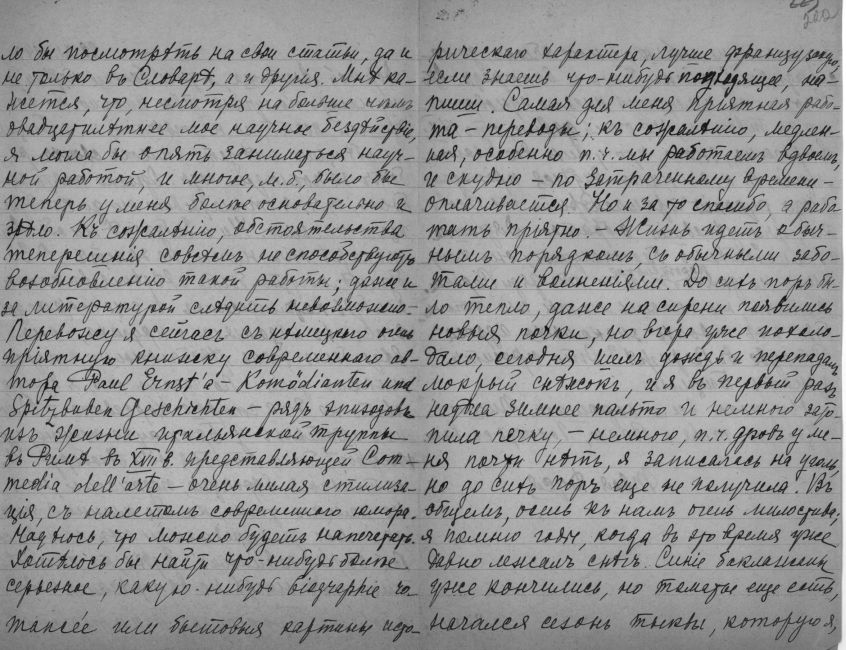 ло бы посмотрѣть на свои статьи, да и
не только въ Словарѣ, а и другія. Мнѣ ка-
жется, что, несмотря на больше чѣмъ
двадцатилѣтнее мое научное бездѣйствіе,
я могла бы опять заниматься науч-
ной работой, и многое, м. б., было бы
теперь у меня болѣе основательно и
зрѣло. Къ сожалѣнію, обстоятельства
теперешнія совсѣмъ не способствуютъ
возобновленію такой работы; даже и
за литературой слѣдить невозможно.
Перевожу я сейчасъ съ нѣмецкаго очень
пріятную книжку современнаго ав-
тора Paul Ernst'a – Komödianten und
Spitzbuben Geschichten – рядъ эпизодовъ
изъ жизни итальянской труппы
въ Римѣ въ XVII в. представляющей Com-
media dell'arte – очень милая стилиза-
ція, съ налетомъ современнаго юмора.
Надѣюсь, что можно будетъ напечатать.
Хотѣлось бы найти что-нибудь болѣе
серьезное, какую-нибудь біографію
или бытовыя картины исто-
рическаго характера, лучше французскую,
если знаешь что-нибудь подходящее, на-
пиши. Самая для меня пріятная рабо-
та – переводы; къ сожалѣнію, медлен-
ная, особенно п. ч. мы работаемъ вдвоемъ,
и скудно – по затраченному времени –
оплачивается. Но и за то спасибо, а рабо
тать пріятно. – Жизнь идетъ обыч-
нымъ порядкомъ, съ обычными забо-
тами и волненіями. До сихъ поръ бы-
ло тепло, даже на сирени появились
новыя почки, но вчера уже похоло-
дало, сегодня шелъ дождь и перепадалъ
мокрый снѣжокъ, и я въ первый разъ
надѣла зимнее пальто и немного зато-
пила печку, – немного, п. ч. дровъ у ме-
ня почти нѣтъ, я записалась на уголь,
но до сихъ поръ еще не получила. Въ
общемъ, осень къ намъ очень милостива;
я помню годы, когда въ это время уже
давно лежалъ снѣгъ. Синіе баклажаны
уже кончились, но томаты еще есть,
начался сезонъ тыквы, которую я,